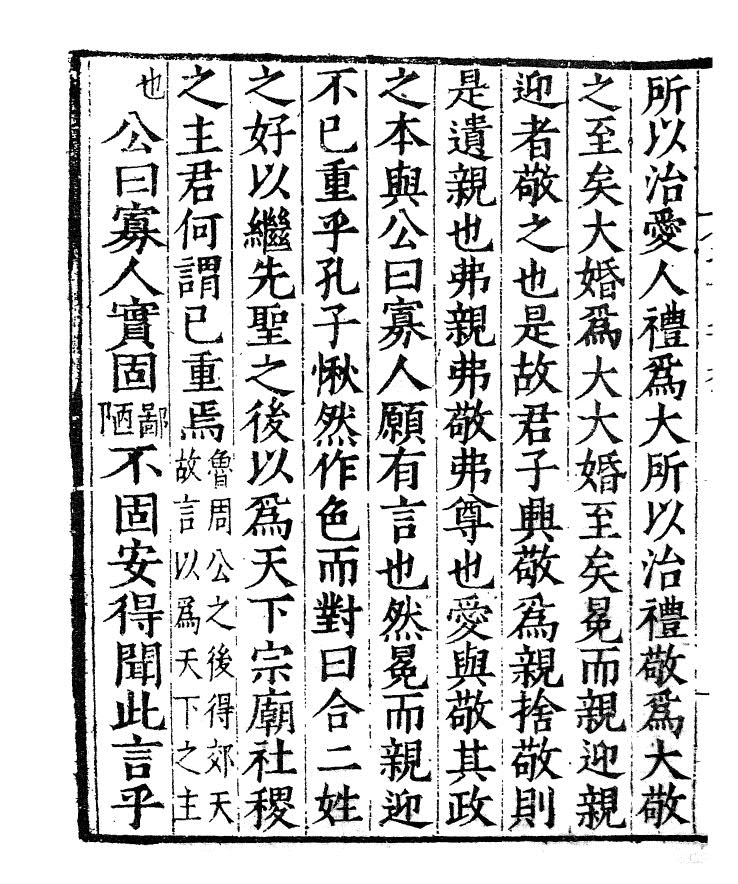 所以治愛人禮爲大所以治禮敬爲大敬
之至矣大婚爲大大婚至矣冕而親迎親
迎者敬之也是故君子興敬爲親捨敬則
是遺親也弗親弗敬弗尊也愛與敬其政
之本與公曰寡人願有言也然冕而親迎
不已重乎孔子愀然作色而對曰合二姓
之好以繼先聖之後以爲天下宗廟社稷
之主君何謂已重焉魯周公之後得郊天故言以爲天下之主
也公曰寡人實固鄙陋不固安得聞此言乎